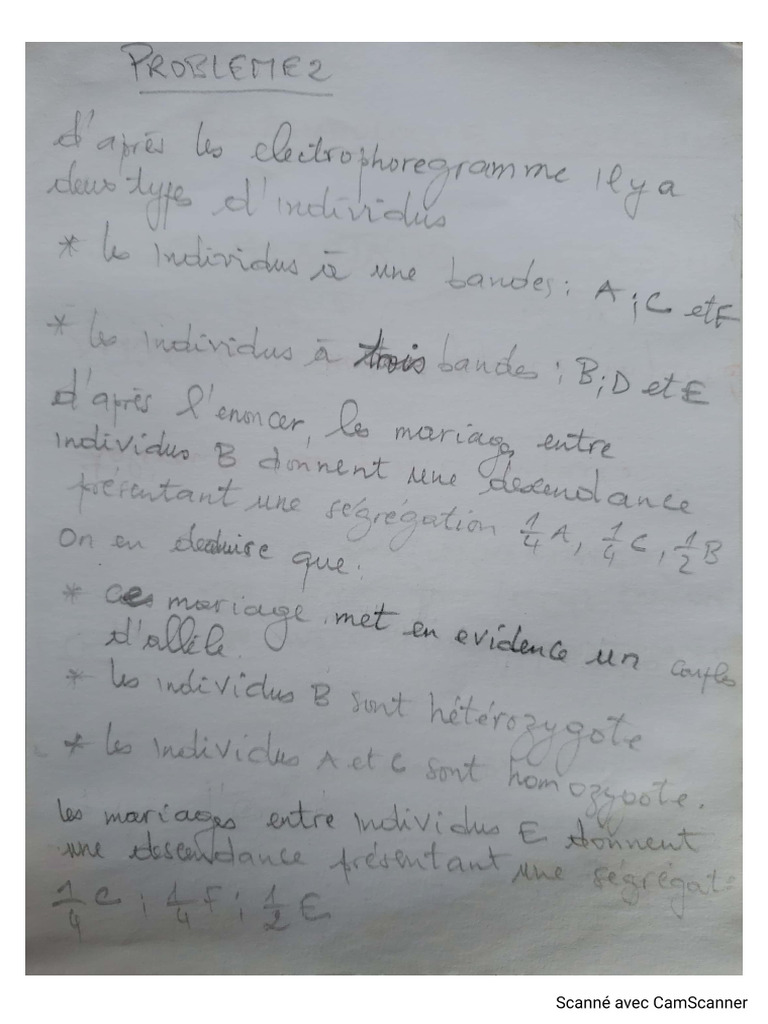 PROBLEME 2
d'après les electrophoregramme il y a
deux types d'individus
* les individus à une bandes : A ; C et F
* les individus à trois bandes : B ; D et E
d'après l'enoncer, les mariages entre
individus B donnent une descendance
présentant une ségrégation 1/4 A, 1/4 C, 1/2 B
On en deduire que :
* ces mariage met en evidence un couples
d'allèle.
* les individus B sont hétérozygote
* les individus A et C sont homozygote.
les mariages entre individus E donnent
une descendance présentant une ségrégat°
1/4 C ; 1/4 F ; 1/2 E
Scanné avec CamScanner